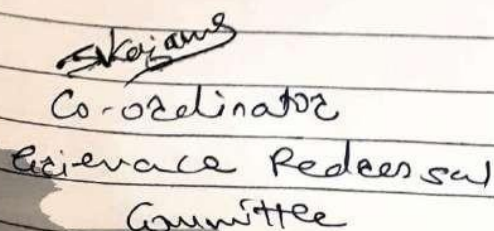 Co-ordinator
Grievace Redressal
Committee